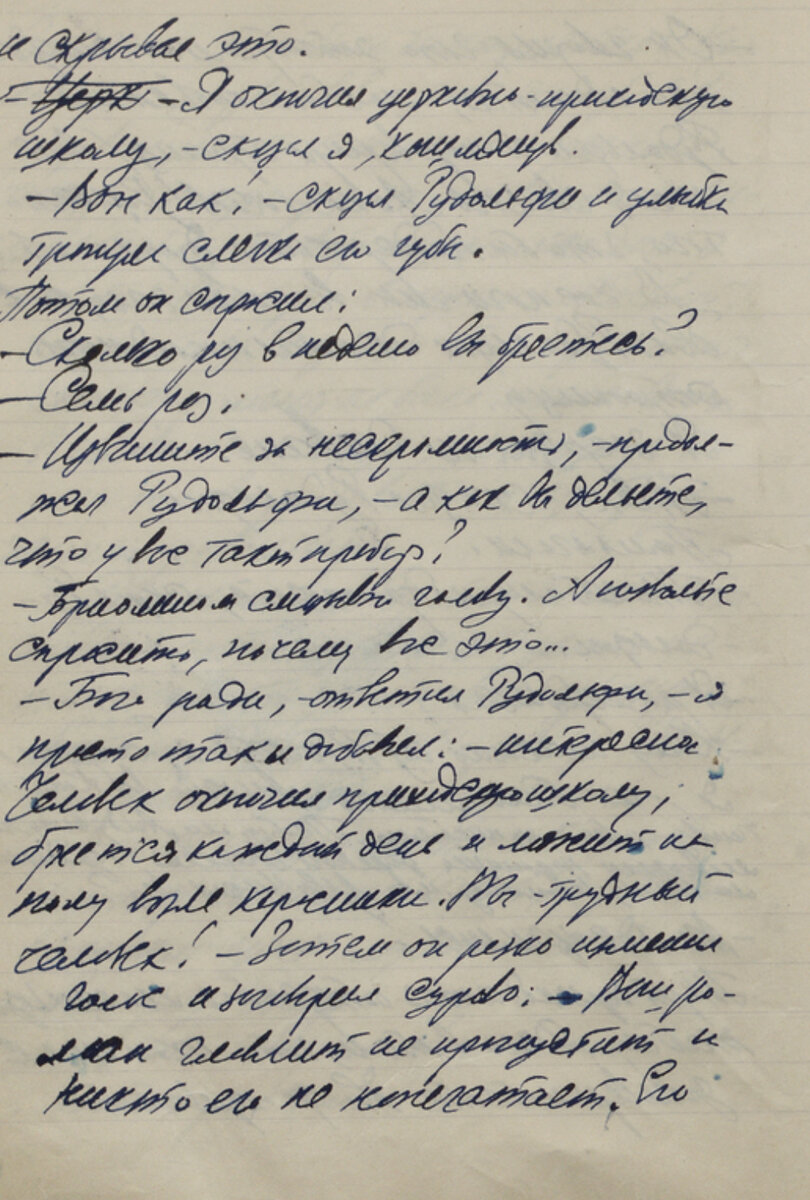 и скрывая это.
– Церк – Я окончил церковно-приходскую
школу, – сказал я, кашлянув.
– Вон как! – сказал Рудольфи и улыбка
тронула слегка его губы.
Потом он спросил:
– Сколько раз в неделю вы бреетесь?
– Семь раз.
– Извините за нескромность, – продол-
жал Рудольфи, – а как вы делаете,
что у вас такой пробор?
– Бриолином смазываю голову. А позвольте
спросить, почему все это...
– Бога ради, – ответил Рудольфи, – я
просто так и добавил: – интересно
Человек окончил приходскую школу,
бреется каждый день и лежит на
полу возле керосинки. Вы – трудный
человек! – Затем он резко изменил
голос и заговорил сурово: – Ваш ро-
ман Главлит не пропустит и
никто его не напечатает. Его